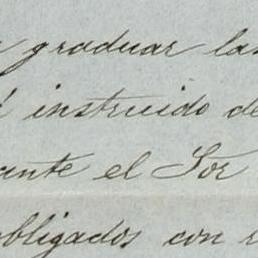 graduar las
instruido de
ante el Sor
obligados con